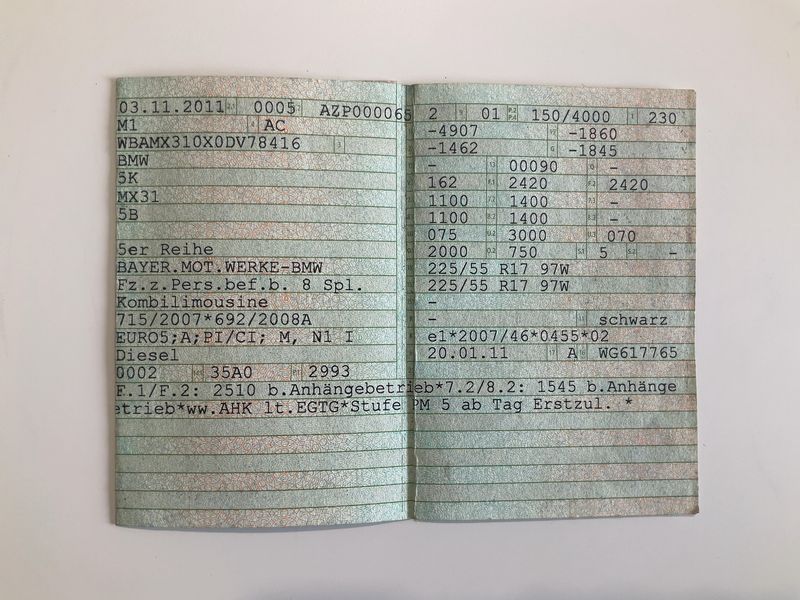 03.11.2011 0005 AZP000065
M1 AC
WBAMX310X0DV78416
BMW
5K
MX31
5B
5er Reihe
BAYER.MOT.WERKE-BMW
Fz.z.Pers.bef.b. 8 Spl.
Kombilimousine
715/2007*692/2008A
EURO5;A;PI/CI; M, N1 I
Diesel
0002 35A0 2993
2 01 150/4000 230
-4907 -1860
-1462 -1845
- 00090 -
162 2420 2420
1100 1400 -
1100 1400 -
075 3000 070
2000 750 5 -
225/55 R17 97W
225/55 R17 97W
-
- schwarz
e1*2007/46*0455*02
20.01.11 A WG617765
F.1/F.2: 2510 b.Anhängebetrieb*7.2/8.2: 1545 b.Anhänge
etrieb*ww.AHK lt.EGTG*Stufe PM 5 ab Tag Erstzul. *